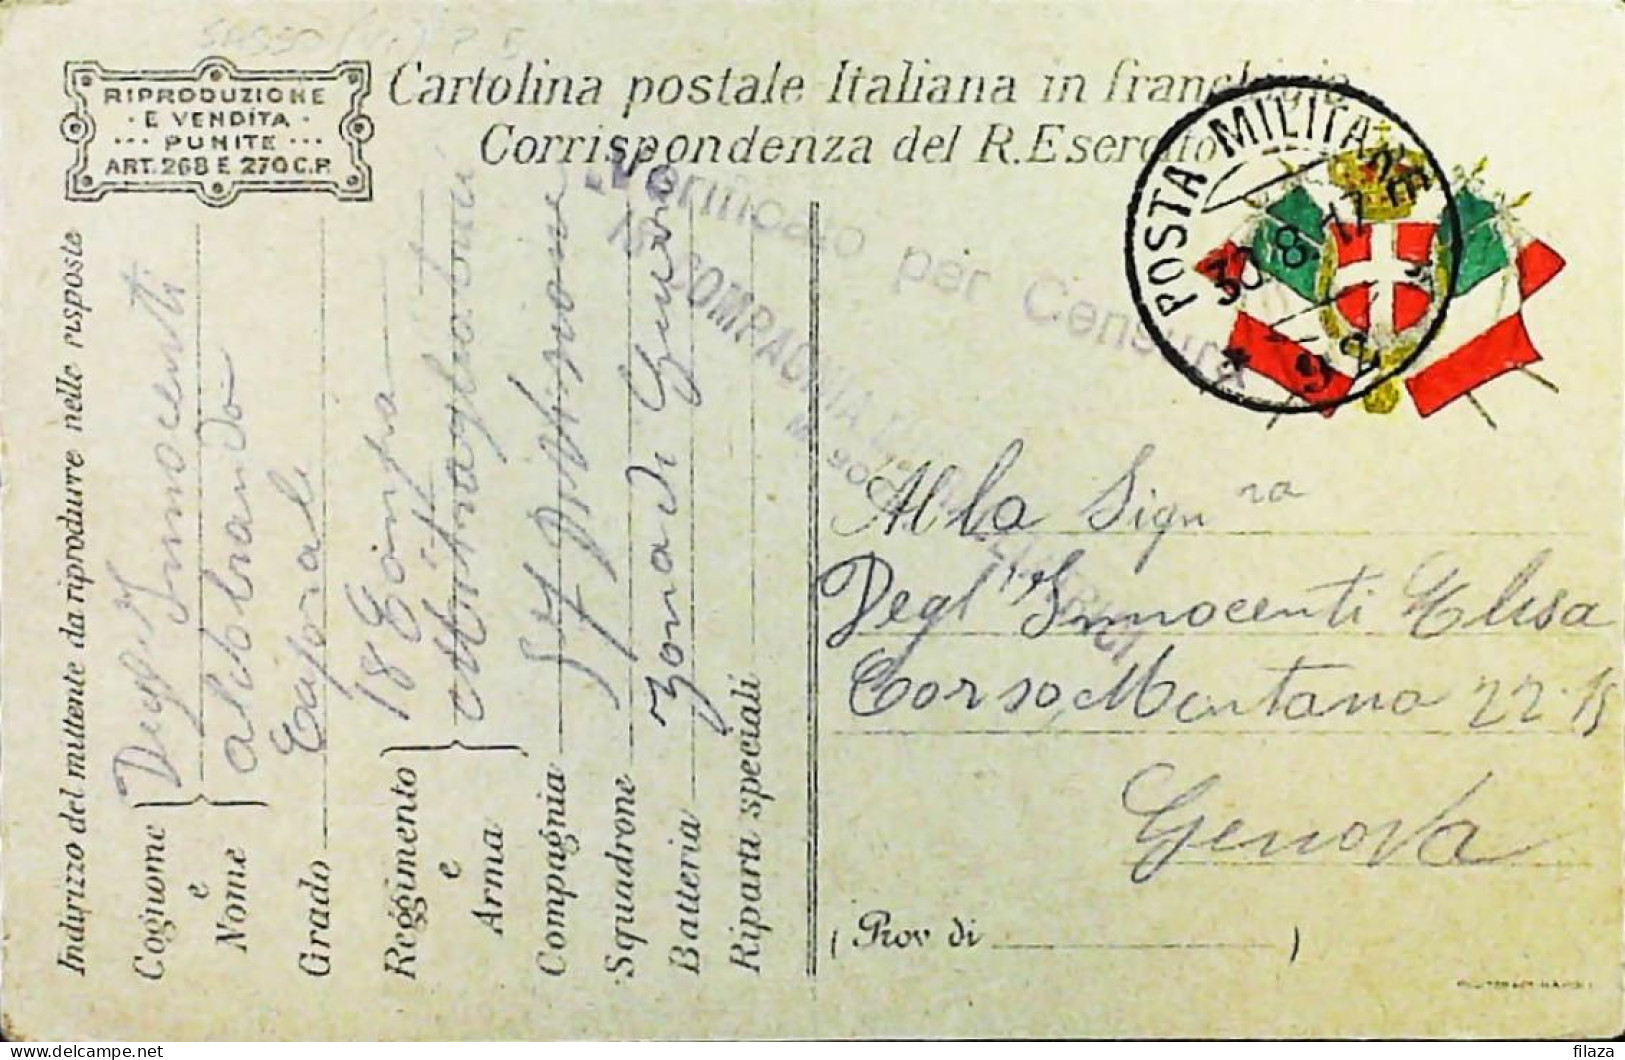 RIPRODUZIONE
E VENDITA
PUNITE
ART. 268 E 270 C.P.
Cartolina postale Italiana in franchigia
Corrispondenza del R. Esercito
POSTA MILITARE
30.8.17
Verificato per Censura
18 COMPAGNIA
Indirizzo del mittente da riprodurre nelle risposte
Cognome e Nome
Degl'Innocenti
Aldebrando
Grado
Caporale
Reggimento e Arma
18 Compa
Mitragliatrici
Compagnia
54 Divisione
Squadrone
Batteria
Zona di Guerra
Riparti speciali
Alla Sign ra
Degl'Innocenti Elisa
Corso Mentana 22-15
Genova
( Prov di )
filaza